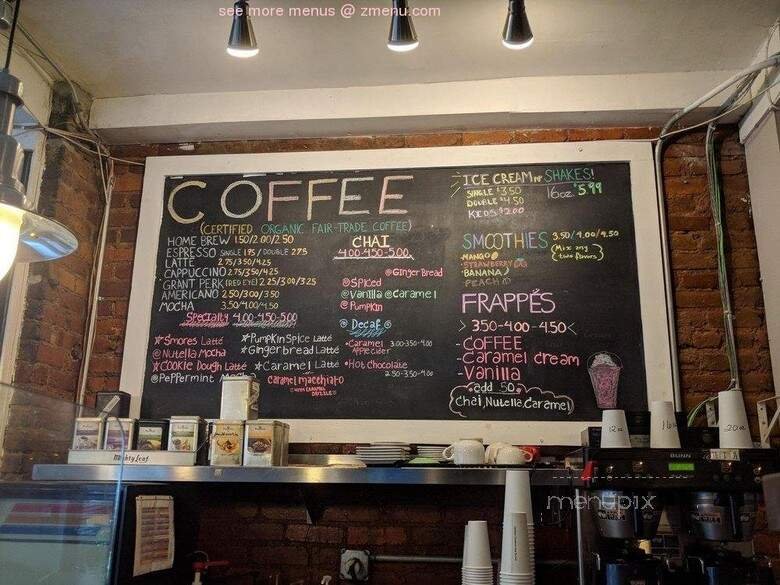 see more menus @ zmenu.com
COFFEE
(CERTIFIED ORGANIC FAIR-TRADE COFFEE)
HOME BREW 1.50/2.00/2.50
ESPRESSO SINGLE 1.95 / DOUBLE 2.75
LATTE 2.75/3.50/4.25
CAPPUCCINO 2.75/3.50/4.25
GRANT PERK (RED EYE) 2.25/3.00/3.25
AMERICANO 2.50/3.00/3.50
MOCHA 3.50/4.00/4.50
Specialty 4.00-4.50-5.00
Smores Latté
Nutella Mocha
Cookie Dough Latté
Peppermint
Pumpkin Spice Latté
Gingerbread Latté
Caramel Latté
caramel macchiato
CHAI
4.00-4.50-5.00
Gingerbread
Spiced
Vanilla Caramel
Pumpkin
Decaf
Caramel 3.00-3.50-4.00
Apple cider
Hot Chocolate
2.50-3.50-4.00
ICE CREAM or SHAKES!
SINGLE $3.50
DOUBLE $4.50
KIDS $2.00
16oz. $5.99
SMOOTHIES 3.50/4.00/4.50
MANGO
STRAWBERRY
BANANA
PEACH
(Mix any two flavors)
FRAPPÉS
> 3.50-4.00-4.50 <
- COFFEE
- Caramel cream
- Vanilla
add .50
Chai, Nutella, Caramel
Mighty Leaf
12oz
16
20oz
BUNN
menupix